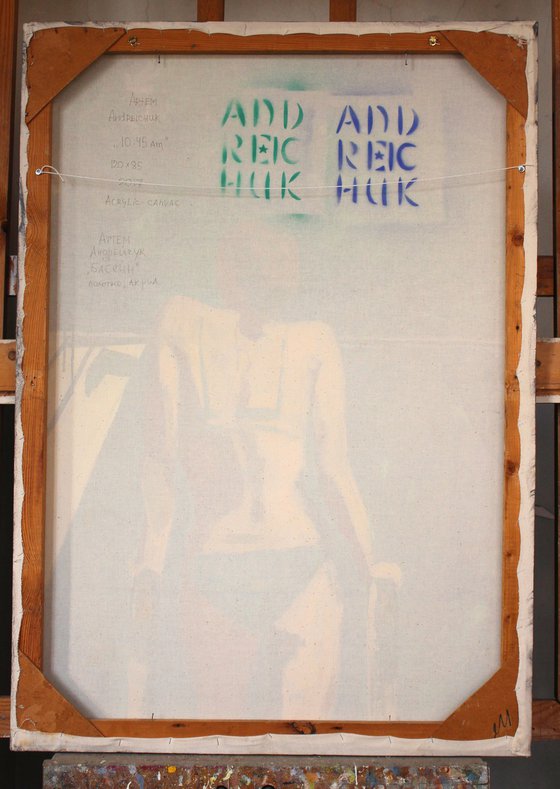 Артем
Andreichuk
„10:45 am"
120x85
Acrylic-canvac
Артем
Андрейчук
„Басейн"
полотно, акрил
AND
REIC
HUK
ANd
REIC
HUK